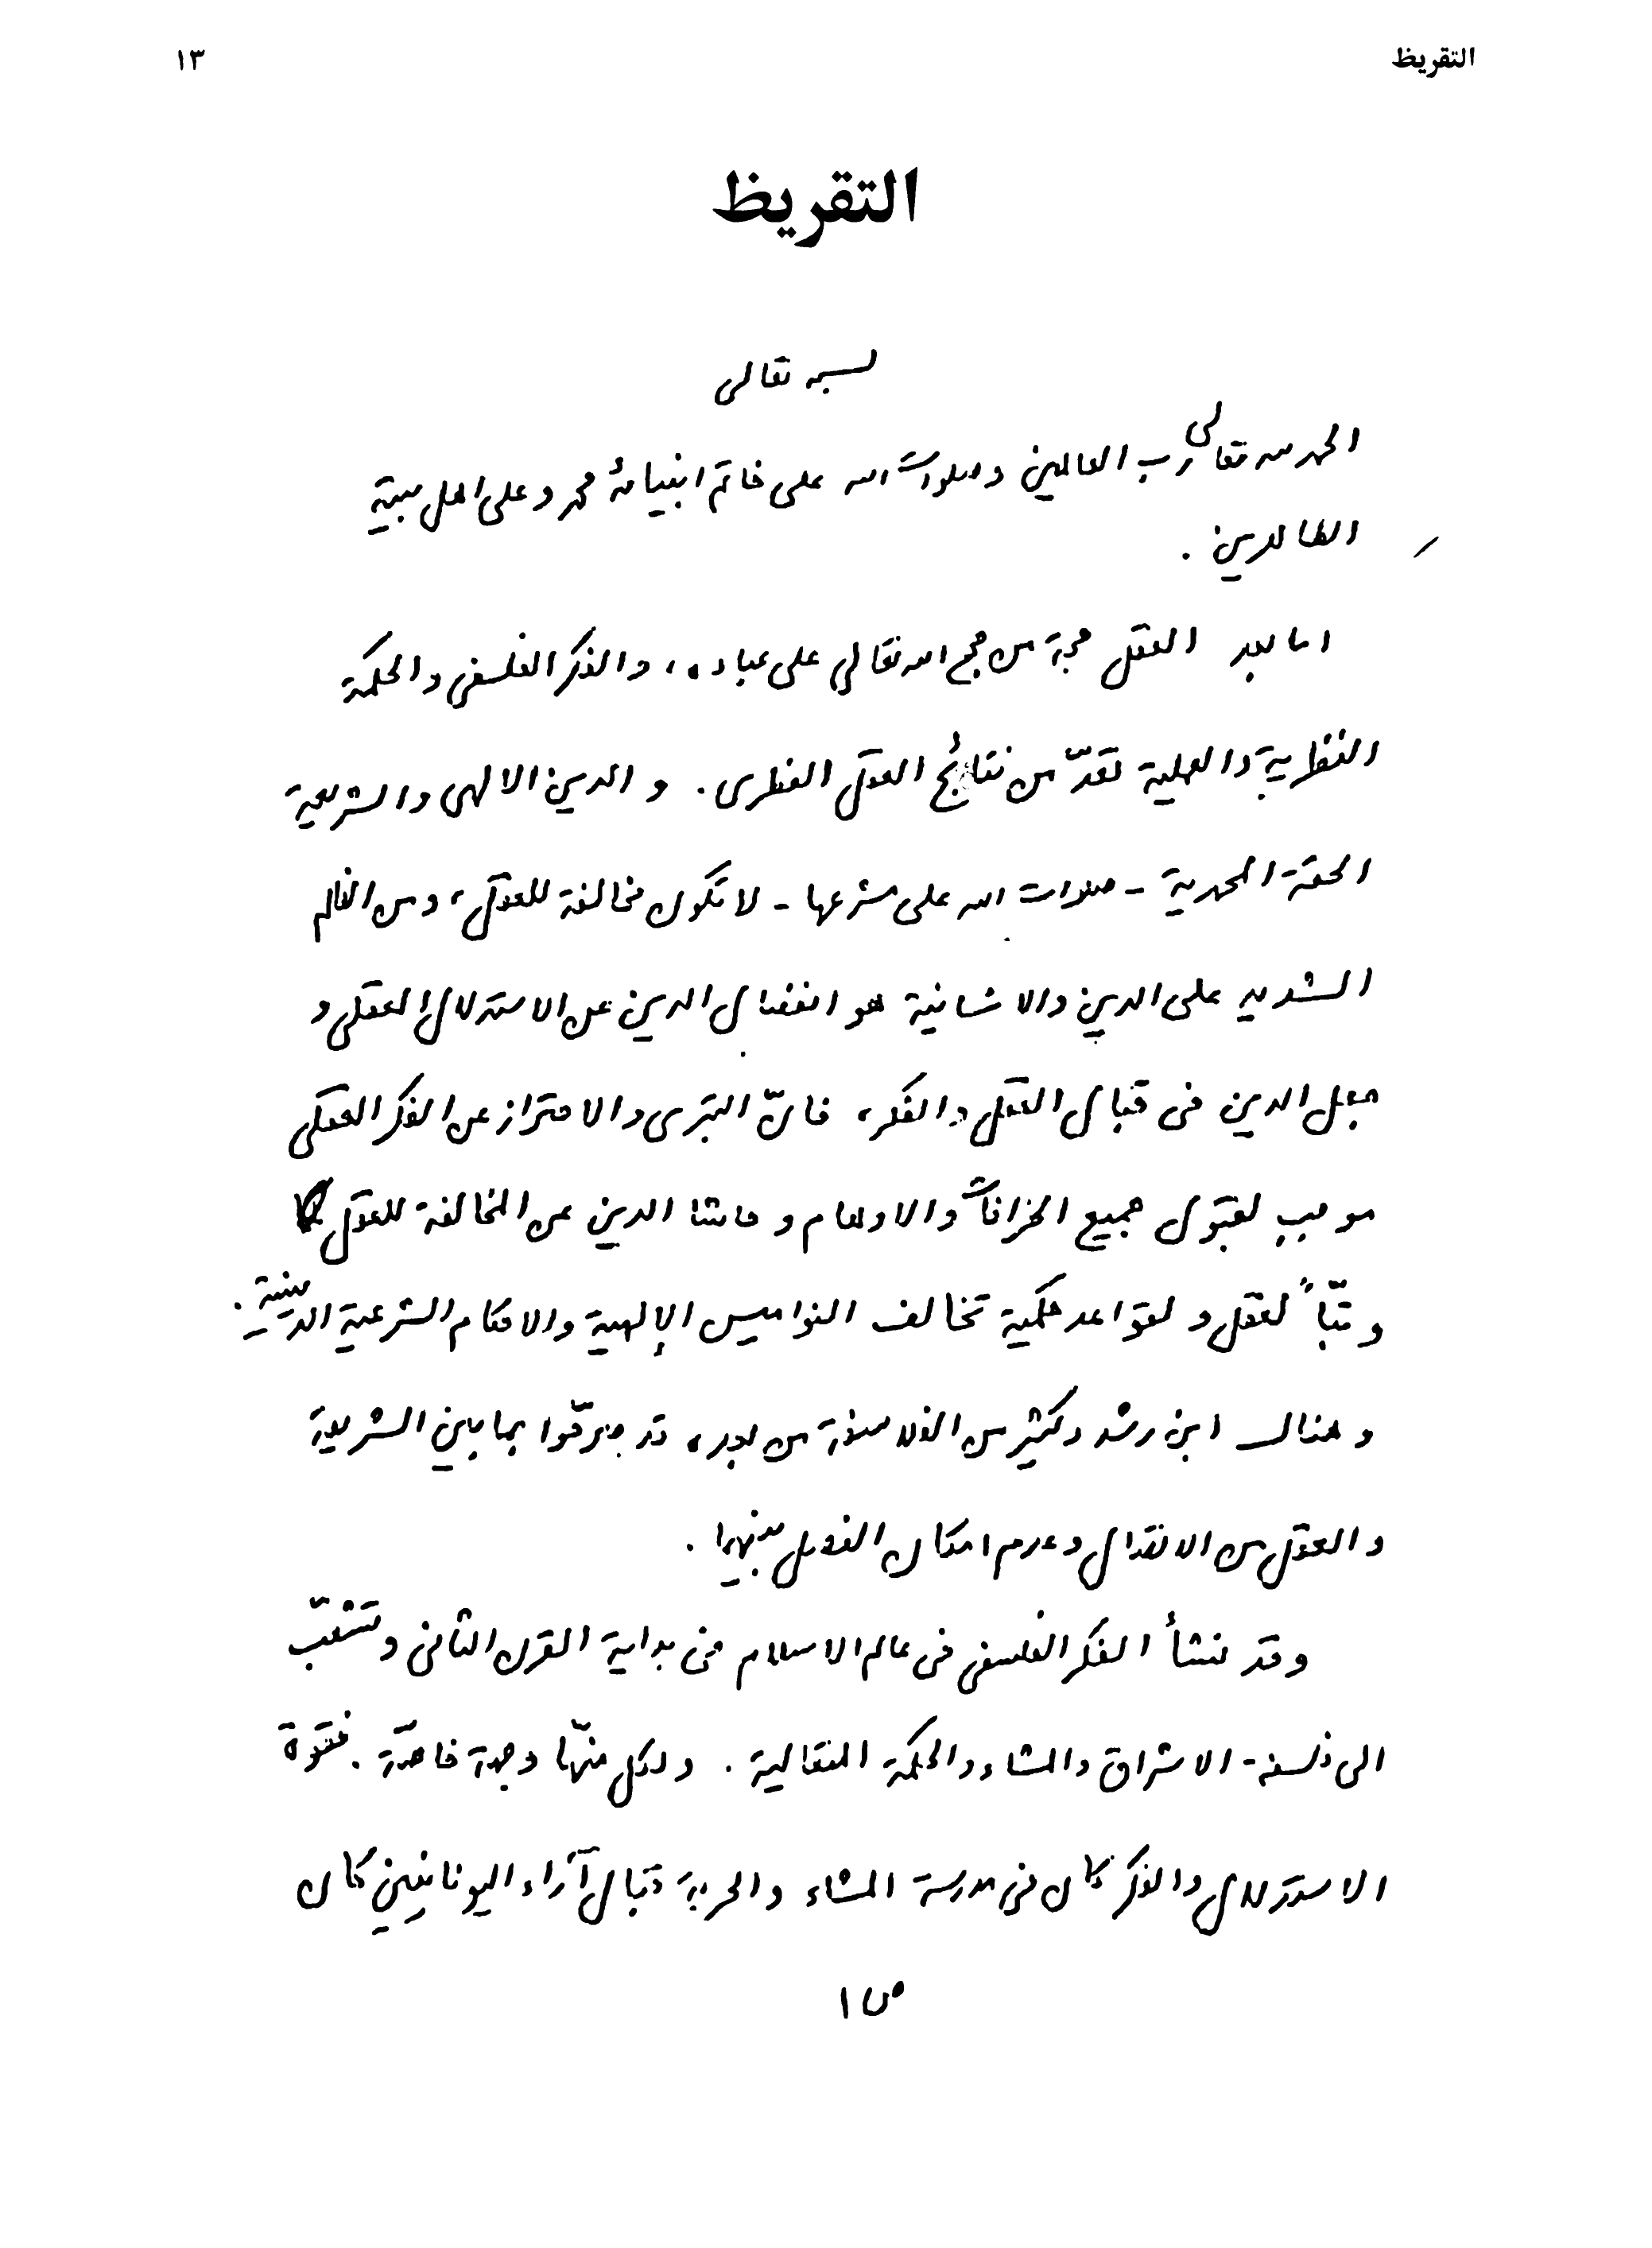 التقريظ ١٣
التقريظ
بسمه تعالى
الحمد لله تعالى رب العالمين وصلوات الله على خاتم انبيائه محمد وعلى اهل بيته
الطاهرين .
اما بعد العقل حجة من حجج الله تعالى على عباده، والفكر الفلسفى والحكمة
النظرية والعملية تعدّ من نتائج العقل الفطرى. و الدين الالهى والشريعة
الحقة المحمدية - صلوات الله على مشرعها - لا تكون مخالفة للعقل، ومن الظلم
الشديد على الدين والانسانية هو انفصال الدين عن الاستدلال العقلى و
جعل الدين فى قبال العقل والفكر، فانّ التبرى والاحتراز عن الفكر العقلى
موجب لقبول جميع الخرافات والاوهام و حاشا الدين عن المخالفة للعقل
و تبّاً لعقل و لقواعد حكمية تخالف النواميس الإلهية والاحكام الشرعية الدينية .
و هناك ابن رشد وكثير من الفلاسفة من بعده قد صرّحوا بما بين الشريعة
و العقل من الاتصال وعدم امكان الفصل بينهما .
وقد نشأ الفكر الفلسفى فى عالم الاسلام فى بداية القرن الثانى وتشعّب
الى فلسفة الاشراق والمشاء والحكمة المتعالية . و لكل منها وجهة خاصّة . فقوة
الاستدلال والفكر كان فى مدرسة المشاء والحرية قبال آراء اليونانيين كان
ص ١